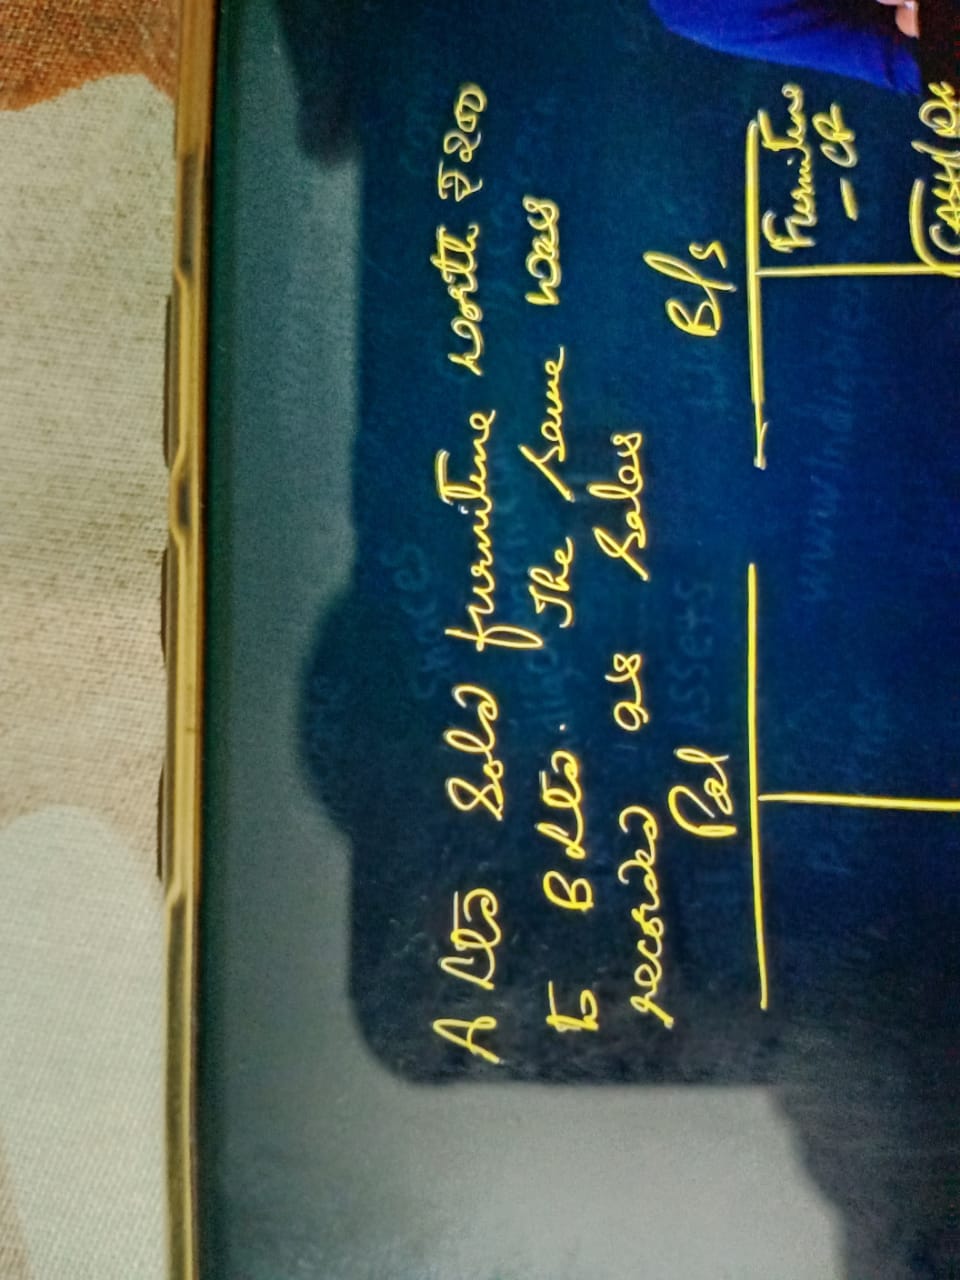 A Ltd Sold furniture worth ₹ 200
to B Ltd. The same was
recorded as Sales
P&L
B/S
Furniture
- CR